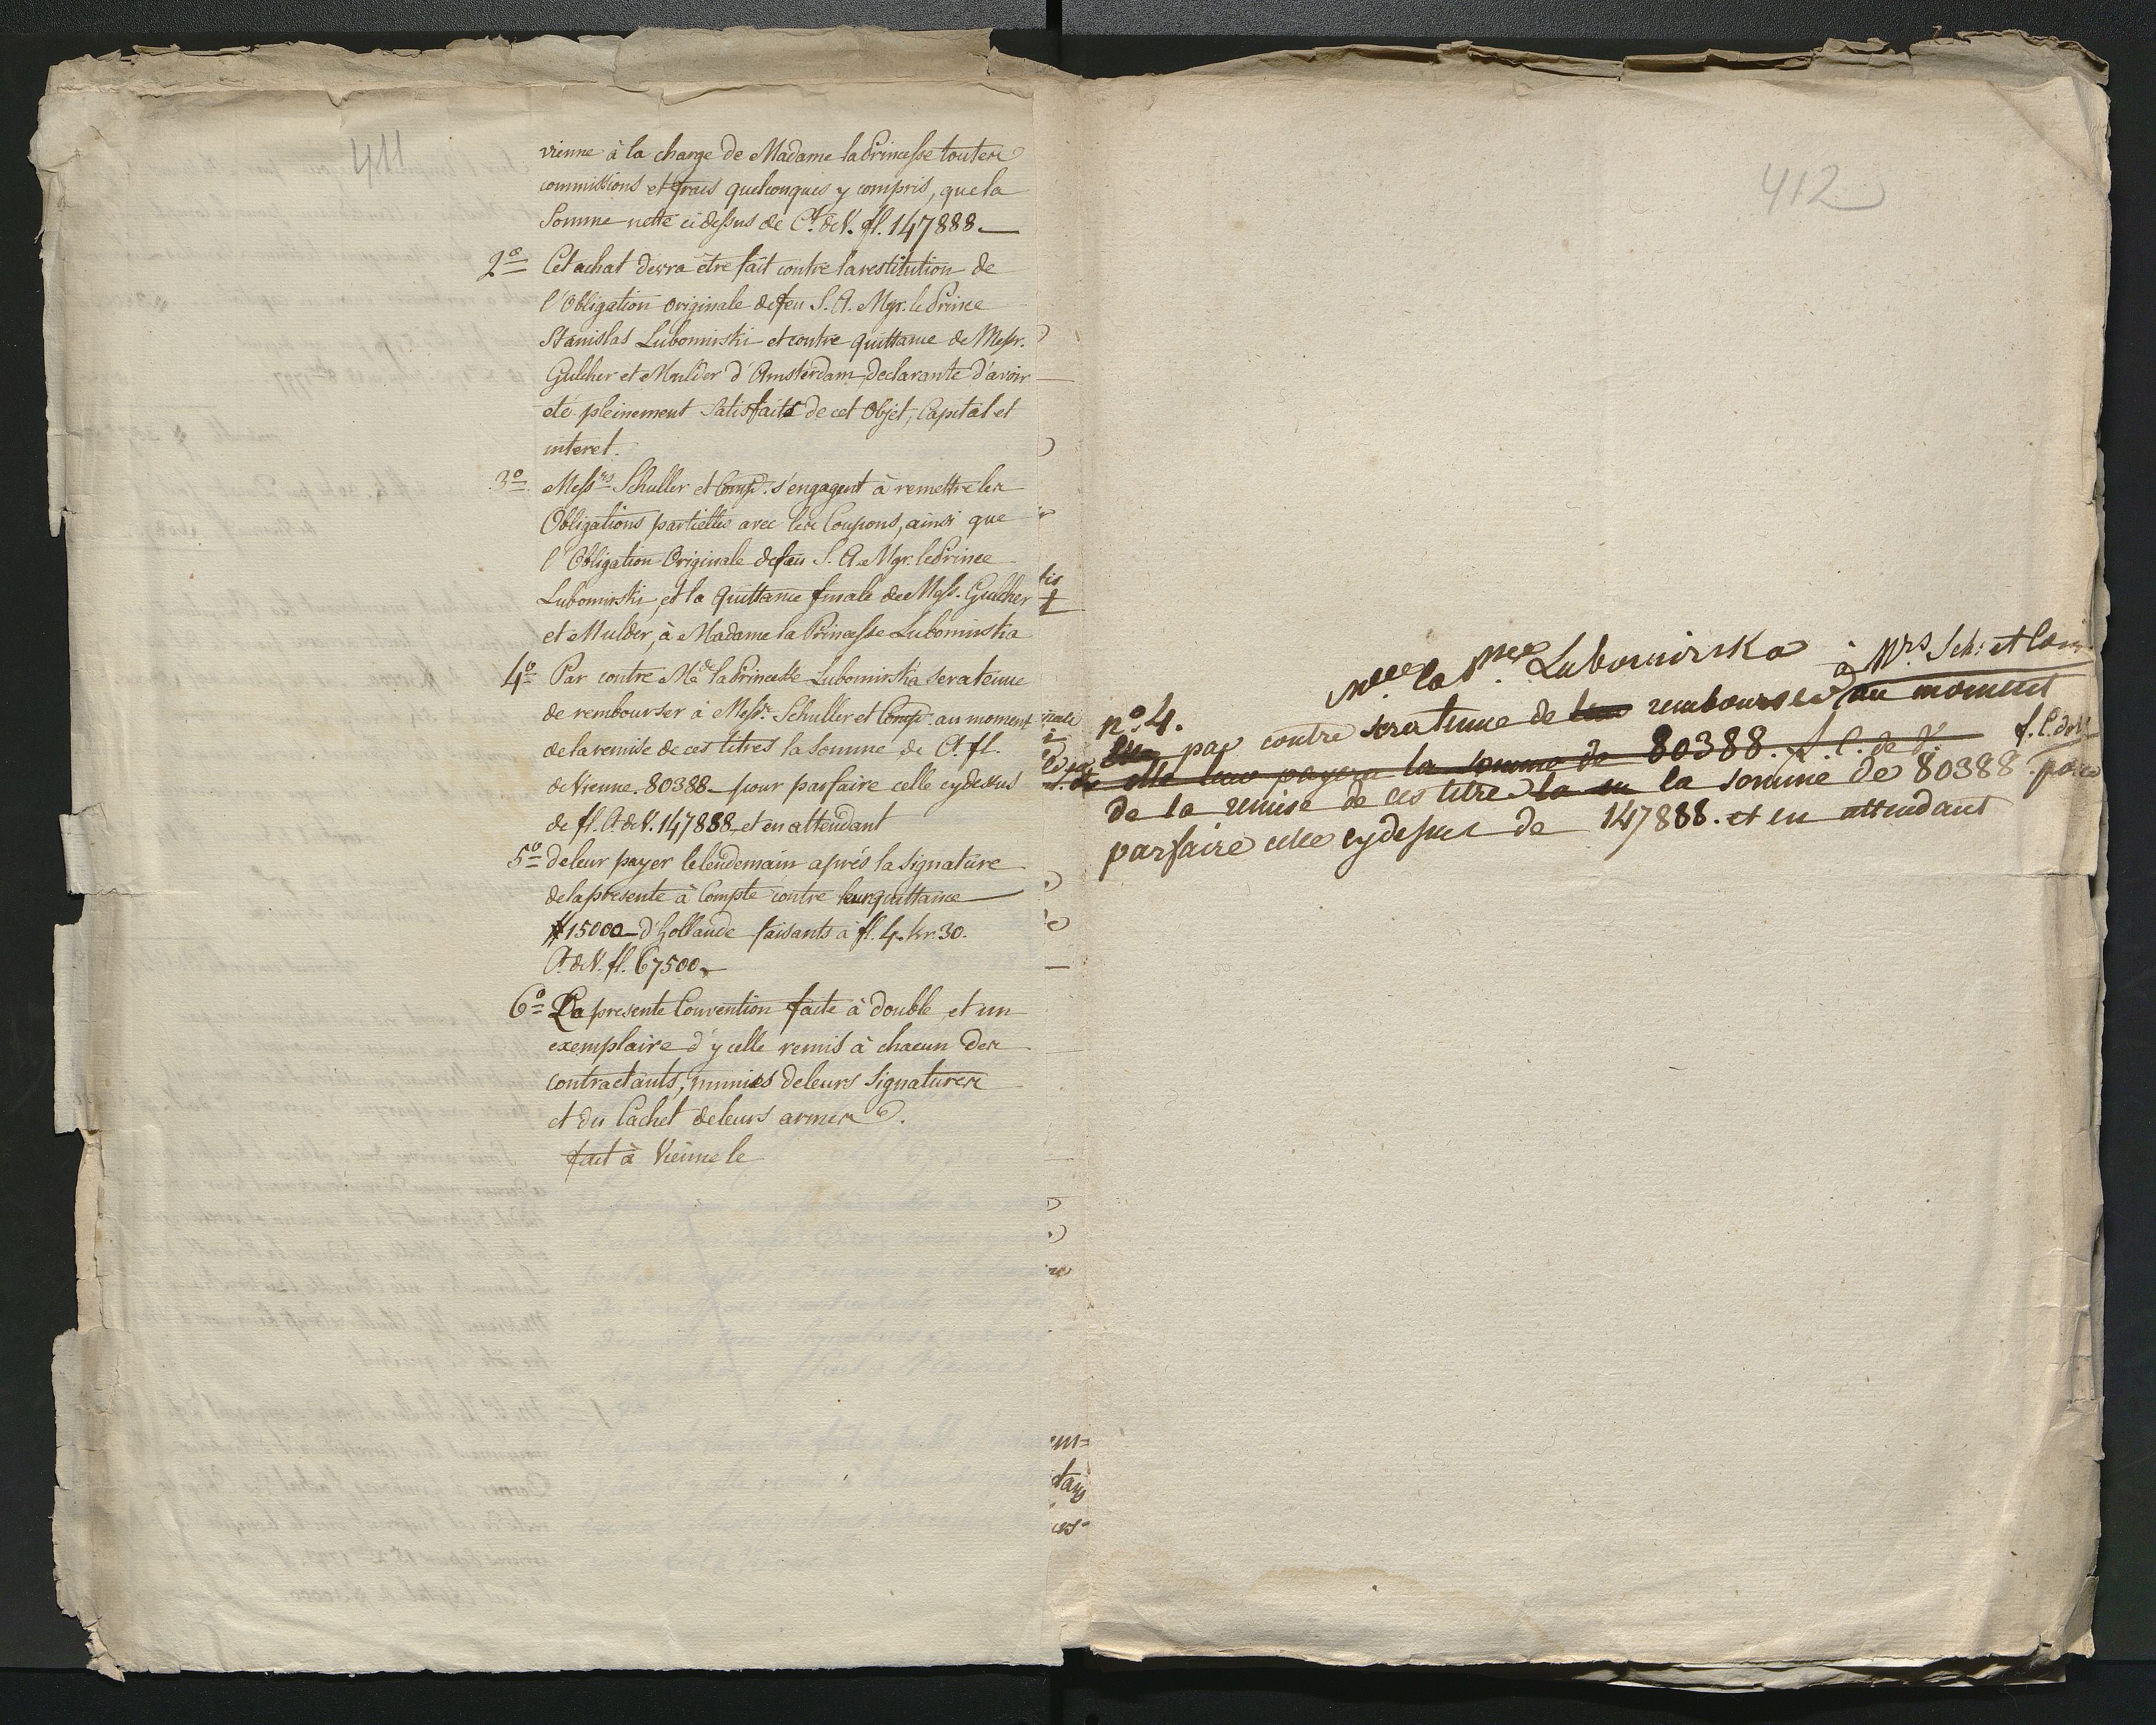 411
vienne à la charge de Madame la Princesse toutes
commissions et frais quelconques y compris, que la
Somme nette ci dessus de Ct. de V. fl. 147888.—
2º Cet achat devra être fait contre la restitution de
l'Obligation originale de feu S. A. Mgr. le Prince
Stanislas Lubomirski et contre quittance de Messr.
Gulcher et Mulder d'Amsterdam, declarante d'avoir
eté pleinement satisfaits de cet Objet, Capital et
interet.
3º Messrs Schuller et Comp. s'engagent à remettre les
Obligations partielles avec les Coupons, ainsi que
l'Obligation Originale de feu S. A. Mgr. le Prince
Lubomirski, et la Quittance finale de Mess. Gulcher
et Mulder, à Madame la Princesse Lubomirska
4º Par contre Me. la Princesse Lubomirska sera tenue
de rembourser à Messr. Schuller et Comp. au moment
de la remise de ces titres la somme de Ct. fl.
de Vienne 80388 — pour parfaire celle cydessus
de fl. Ct. de V. 147888, et en attendant
5º de leur payer le lendemain aprés la signature
de la presente à Compte contre leur quittance
# 15000 — d'Hollande faisants à fl. 4. kr. 30.
Ct. de V. fl. 67500.—
6º La presente Convention faite à double, et un
exemplaire d'ycelle remis à chacun des
contractants, munies de leurs signatures
et du Cachet de leurs armes.
fait à Vienne le
412
Me la Pce Lubomirska à Mrs. Sch: et Com
nº 4.
par contre sera tenue de leur rembourser au moment
elle leur payera la somme de 80388. f. C. de V. f. C. de V
de la remise de ces titres la somme de 80388 pour
parfaire celle cydessus de 147888. et en attendant